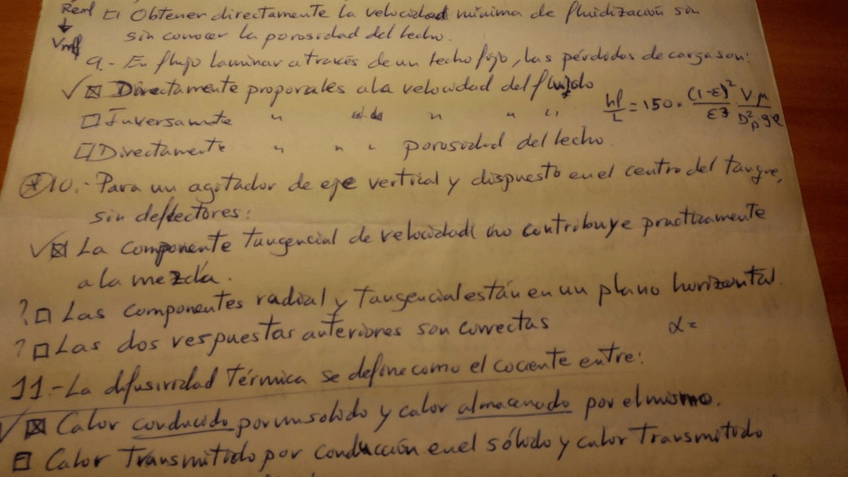 Reml □ Obtener directamente la velocidad mínima de fluidización sin
↓
Vmf
sin conocer la porosidad del lecho.
9.- En flujo laminar a través de un lecho fijo, las pérdidas de carga son:
✓ ☒ Directamente proporales a la velocidad del fluido
hf/L = 150 · (1-ε)²/ε3 Vμ/D²p gρ
□ Inversamte " " " " "
□ Directamente " " " porosidad del lecho.
⊛10.- Para un agitador de eje vertical y dispuesto en el centro del tanque,
sin deflectores:
✓ ☒ La componente tangencial de velocidad no contribuye practicamente
a la mezcla.
? □ Las componentes radial y tangencial están en un plano horizontal.
? □ Las dos respuestas anteriores son correctas
α=
11.- La difusividad térmica se define como el cociente entre:
✓ ☒ Calor conducido por un solido y calor almacenado por el mismo.
□ Calor transmitido por conducción en el sólido y calor transmitido